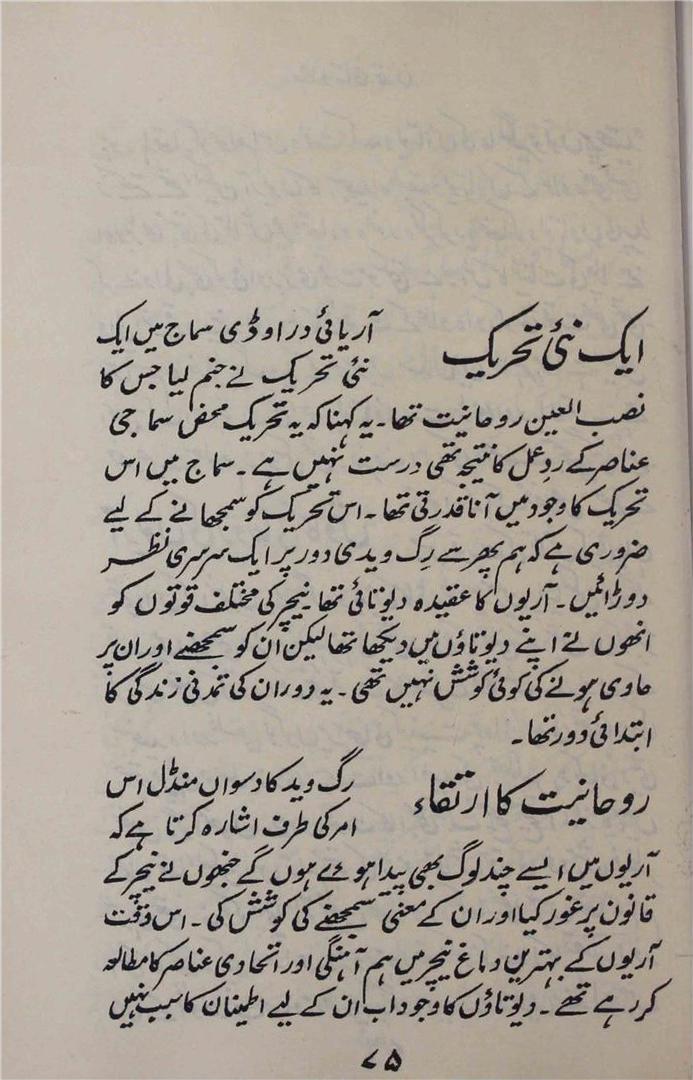 ایک نئی تحریک
آریائی دراوڈی سماج میں ایک
نئی تحریک نے جنم لیا جس کا
نصب العین روحانیت تھا۔ یہ کہنا کہ یہ تحریک محض سماجی
عناصر کے ردِ عمل کا نتیجہ تھی درست نہیں ہے۔ سماج میں اس
تحریک کا وجود میں آنا قدرتی تھا۔ اس تحریک کو سمجھانے کے لیے
ضروری ہے کہ ہم پھر سے رِگ ویدی دور پر ایک سرسری نظر
دوڑائیں۔ آریوں کا عقیدہ دیوتائی تھا۔ نیچر کی مختلف قوتوں کو
انھوں نے اپنے دیوتاؤں میں دیکھا تھا لیکن ان کو سمجھنے اور ان پر
حاوی ہونے کی کوئی کوشش نہیں تھی۔ یہ دور ان کی تمدنی زندگی کا
ابتدائی دور تھا۔
روحانیت کا ارتقاء
رگ وید کا دسواں منڈل اس
امر کی طرف اشارہ کرتا ہے کہ
آریوں میں ایسے چند لوگ بھی پیدا ہوۓ ہوں گے جنھوں نے نیچر کے
قانون پر غور کیا اور ان کے معنی سمجھنے کی کوشش کی۔ اس وقت
آریوں کے بہترین دماغ نیچر میں ہم آہنگی اور اتحادی عناصر کا مطالعہ
کر رہے تھے۔ دیوتاؤں کا وجود اب ان کے لیے اطمینان کا سبب نہیں
۷۵